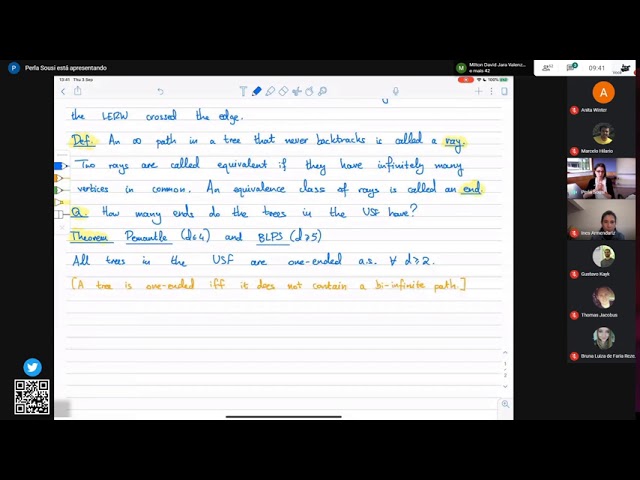 Perla Sousi está apresentando
Milton David Jara Valenz...
e mais 42
09:41
13:41 Thu 3 Sep
the LERW crossed the edge.
Def. An ∞ path in a tree that never backtracks is called a ray.
Two rays are called equivalent if they have infinitely many
vertices in common. An equivalence class of rays is called an end.
Q. How many ends do the trees in the USF have?
Theorem Pemantle (d≤4) and BLPS (d≥5)
All trees in the USF are one-ended a.s. ∀ d≥2.
[A tree is one-ended iff it does not contain a bi-infinite path.]
A
Anita Winter
Marcelo Hilario
Perla Sousi
Ines Armendariz
Gustavo
Thomas Jacobus
Bruna Luiza de Faria Reze